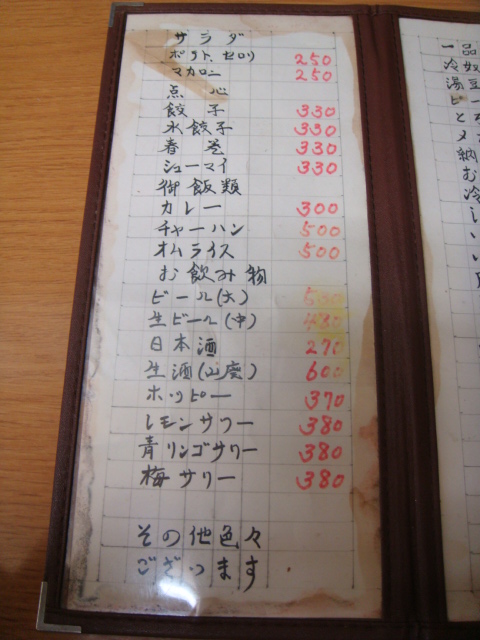 サラダ
ポテト、セロリ 250
マカロニ 250
点心
餃子 330
水餃子 330
春巻 330
シューマイ 330
御飯類
カレー 300
チャーハン 500
オムライス 500
お飲み物
ビール(大)
生ビール(中) 480
日本酒 270
生酒 600
ホッピー 370
レモンサワー 380
青リンゴサワー 380
梅サワー 380
その他色々
ございます。
一品
冷奴
湯豆